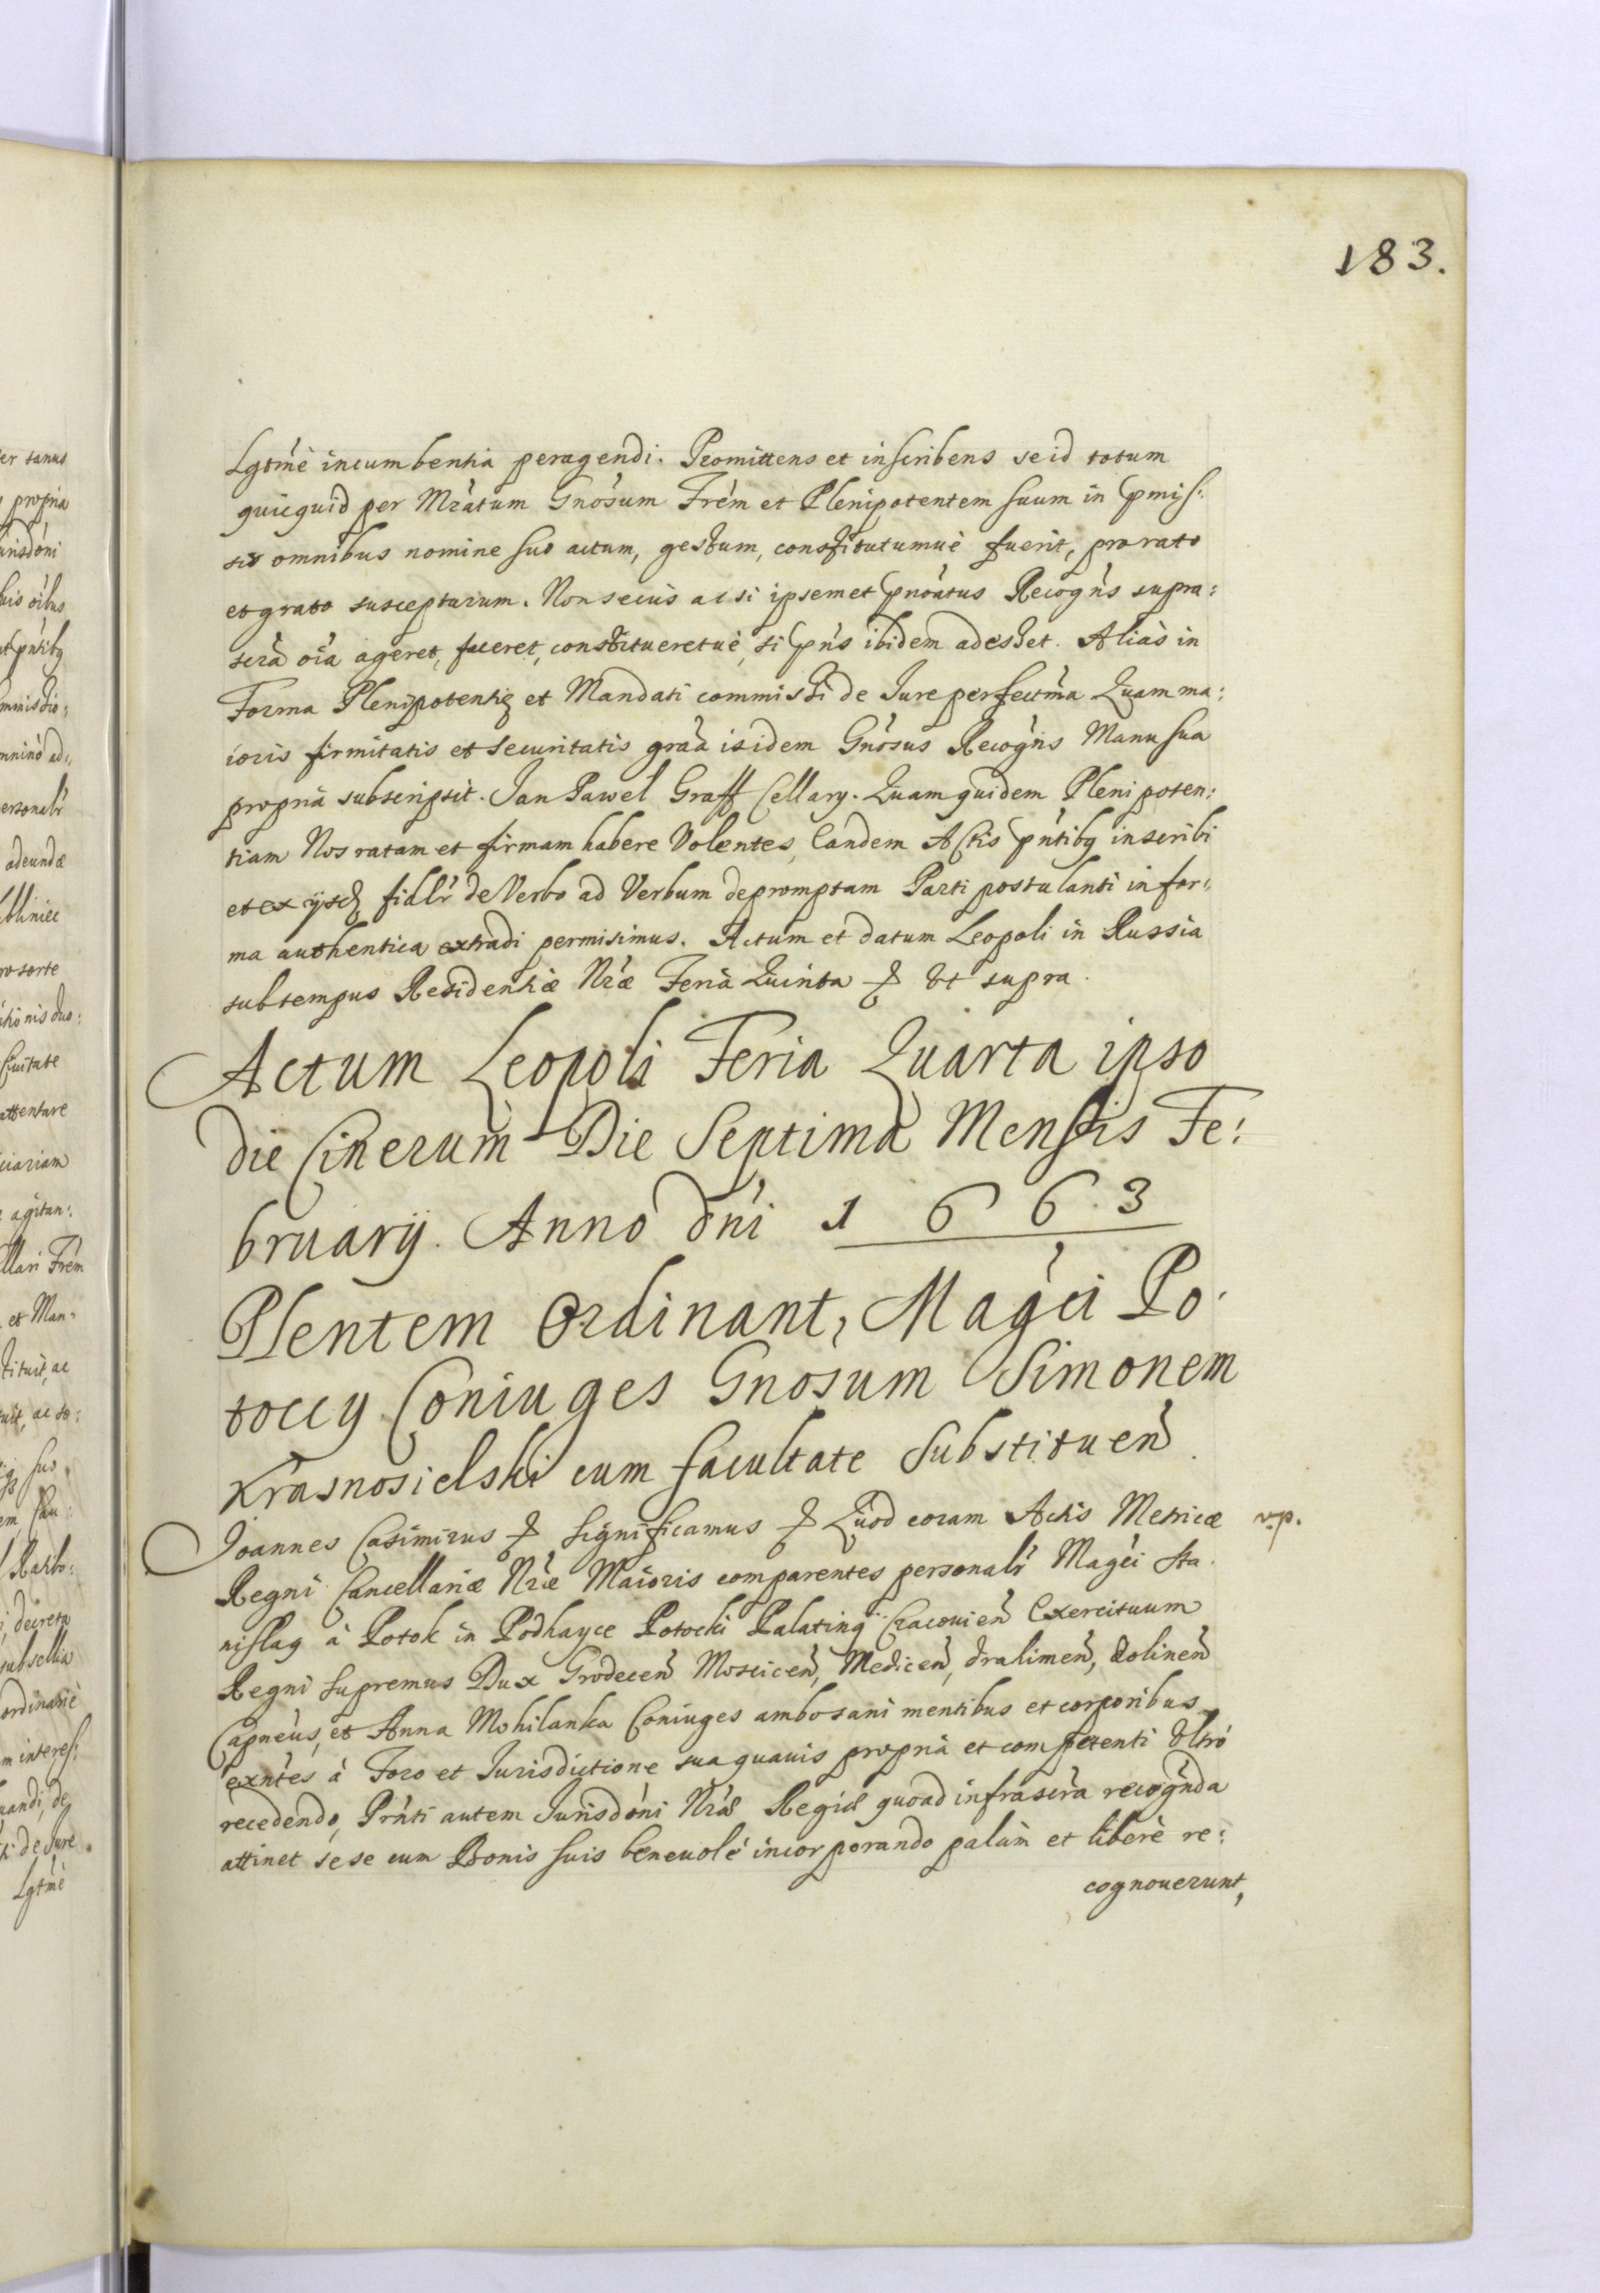 183.
Lgtmè incumbentia peragendi. Promittens et inscribens se id totum
quicquid per Mràtum Gnósum Frém et Plenipotentem suum in pmis:
sis omnibus nomine suo actum, gestum, constitutumuè fuerit, pro rato
et grato suscepturum. Non secus ac si ipsemet pnóatus Recogńs supra:
scrà oía ageret, faceret, constitueretuè, si pńs ibidem adesset. Aliàs in
Forma Plenipotentię et Mandati commissi de Iure perfectma Quam ma:
ioris firmitatis et securitatis gráà isidem Gnósus Recogńs Manu sua
proprià subscripsit. Jan Paweł Graff Cellary. Quam quidem Plenipoten:
tiam Nos ratam et firmam habere Volentes, Eandem Actis pńtibq inscribi
et ex ijsdę fidlr de Verbo ad Verbum depromptam Parti postulanti in for:
ma authentica extradi permisimus. Actum et datum Leopoli in Russia
sub tempus Residentiæ Nræ Ferià Quinta & Ut supra.
Actum Leopoli Feria Quarta ipso
die Cinerum Die Septima Mensis Fe:
bruarij. Anno dńi 1 6 6 3
Plentem Ordinant, Magći Po:
toccy Coniuges Gnosum Simonem
Krasnosielski cum facultate Substitueń
Joannes Casimirus & significamus & Quod coram Actis Metricæ
v.p.
Regni Cancellariæ Nræ Maioris comparentes personalr Magći Sta:
nislaq à Potok in Podhayce Potocki Palatinq Cracouień Exercituum
Regni supremus Dux Grodeceń Mosciceń, Mediceń, dralimeń, Dolineń
Capneùs, et Anna Mohilanka Coniuges ambo sani mentibus et corporibus
exńtes à Foro et Jurisdictione sua quauis proprià et competenti Ultró
recedendo, Prńti autem Jurisdóni Nrǽ Regiæ quoad infrascrà recogńda
attinet sese cum Bonis suis beneuolé incorporando palàm et liberè re:
cognouerunt,